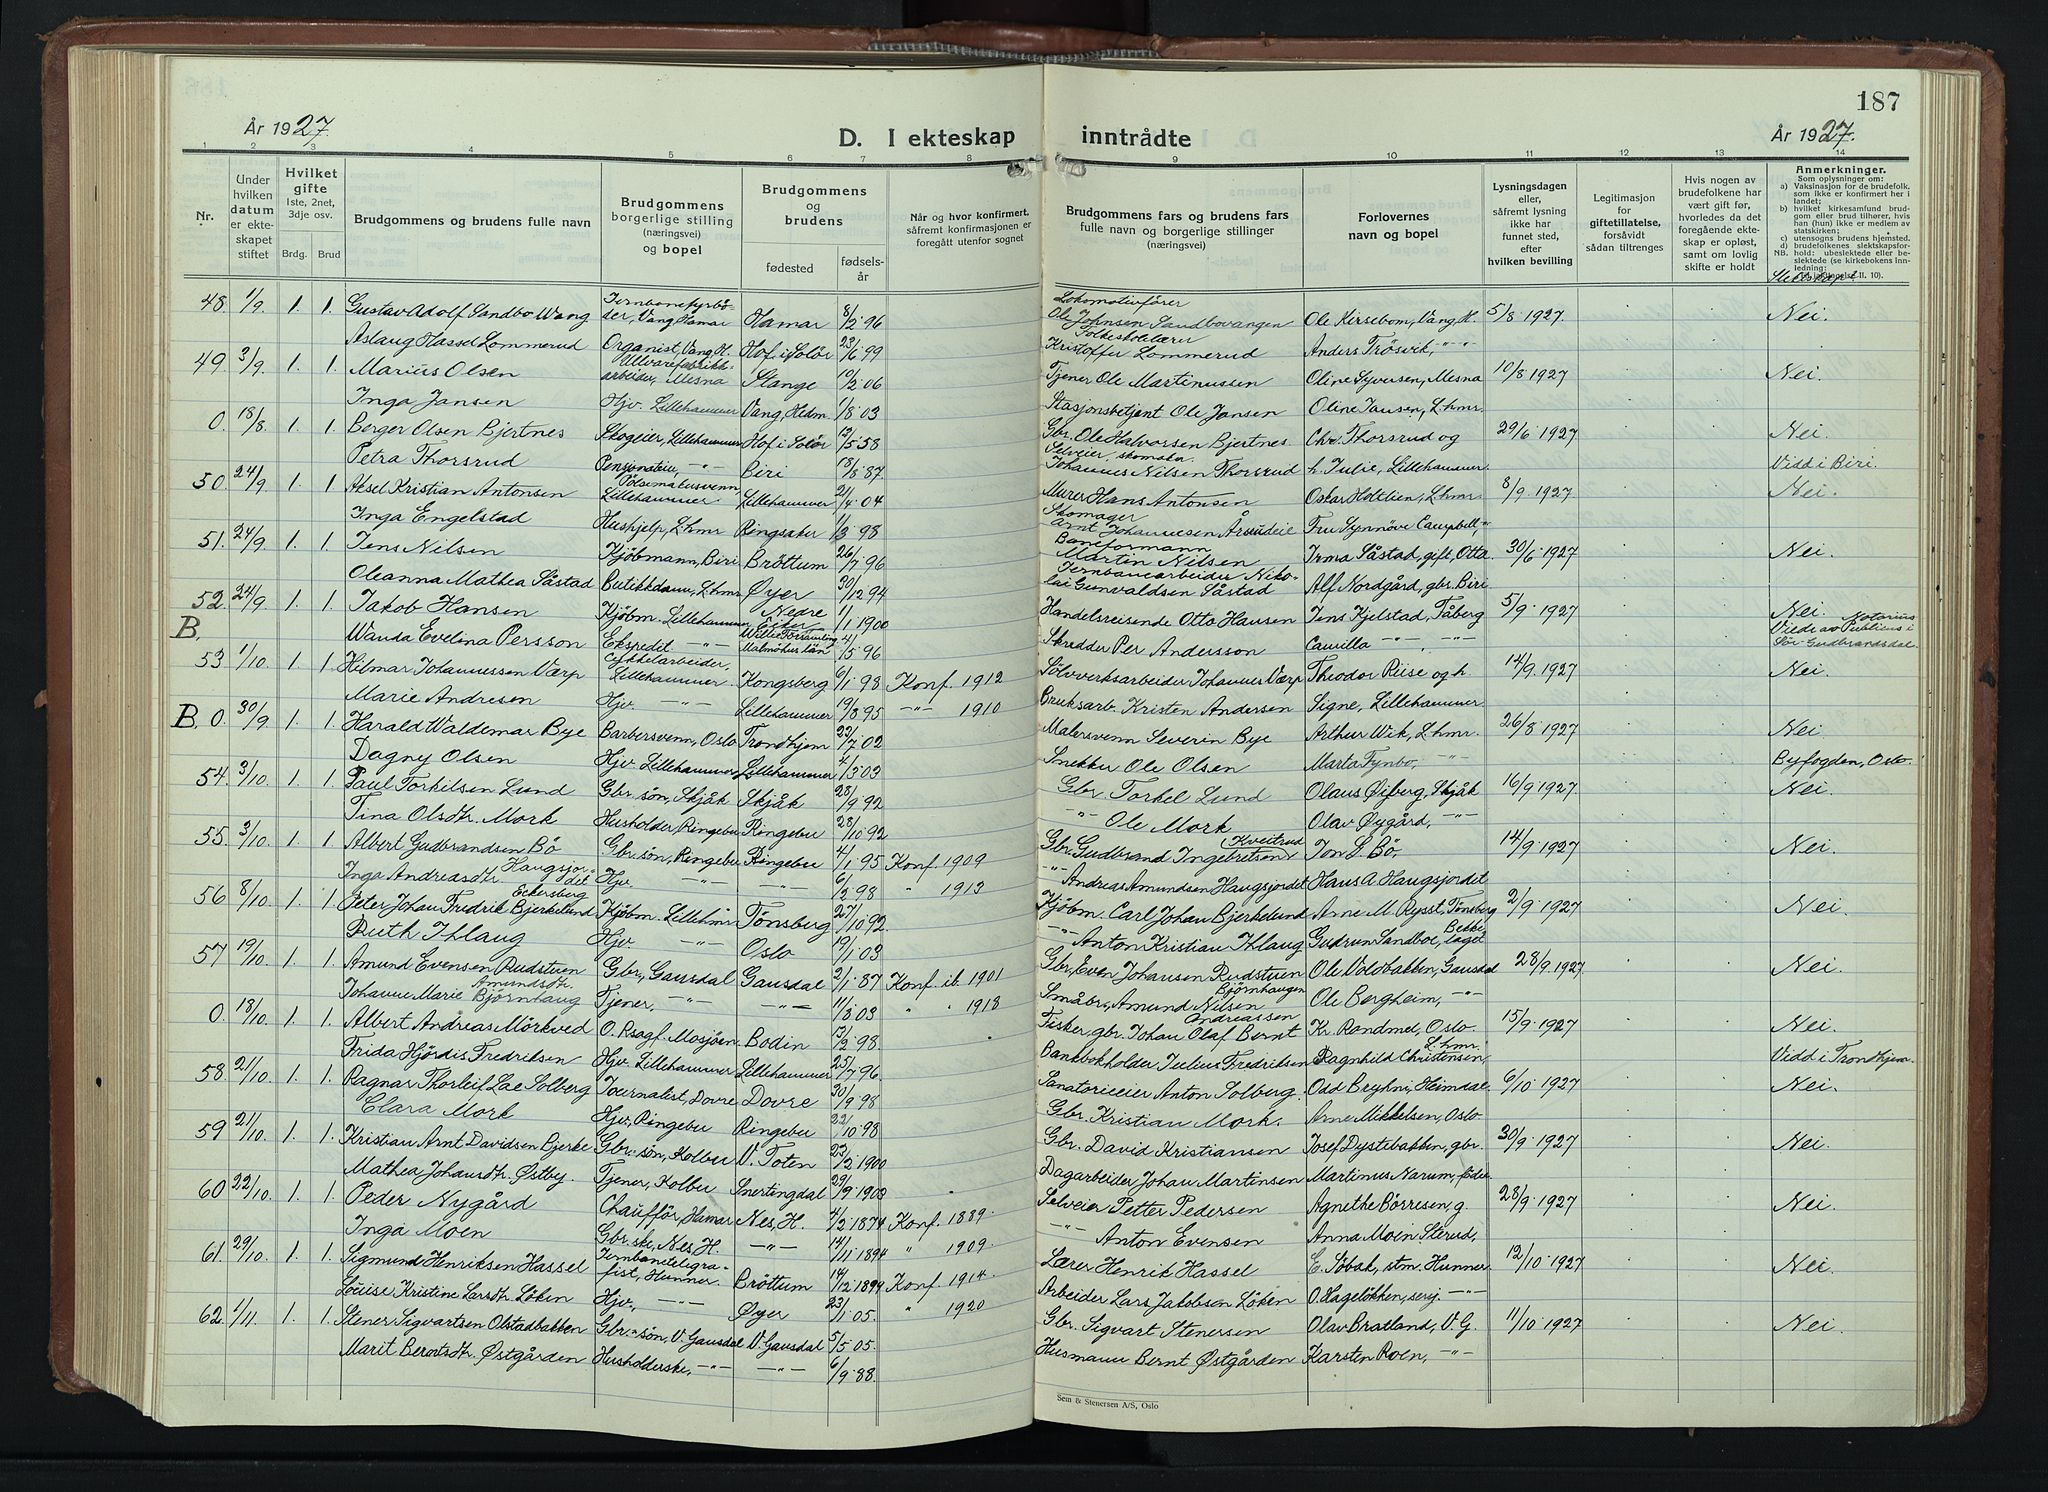 187
År 1927.
D. I ekteskap inntrådte
År 1927.
1 2 3 4 5 6 7 8 9 10 11 12 13 14
Nr.
Under hvilken datum er ekteskapet stiftet
Hvilket gifte 1ste, 2net, 3dje osv.
Brdg. Brud
Brudgommens og brudens fulle navn
Brudgommens borgerlige stilling (næringsvei) og bopel
Brudgommens og brudens
fødested
fødselsår
Når og hvor konfirmert, såfremt konfirmasjonen er foregått utenfor sognet
Brudgommens fars og brudens fars fulle navn og borgerlige stillinger (næringsvei)
Forlovernes navn og bopel
Lysningsdagen eller, såfremt lysning ikke har funnet sted, efter hvilken bevilling
Legitimasjon for giftetillatelse, forsåvidt sådan tiltrenges
Hvis nogen av brudefolkene har vært gift før, hvorledes da det foregående ekteskap er opløst, samt om lovlig skifte er holdt
Anmerkninger.
Som oplysninger om:
a) Vaksinasjon for de brudefolk, som ikke er konfirmert her i landet;
b) hvilket kirkesamfund brudgom eller brud tilhører, hvis han (hun) ikke er medlem av statskirken;
c) utensogns brudens hjemsted.
d) brudefolkenes slektskapsforhold: ubeslektede eller beslektede (se kirkebokens innledning:
Slektskap:
48. 1/9 1. 1. Gustav Adolf Sandbo Wang Jernbanefyrbøter, Vang Hamar Hamar 8/2 96 Lokomotivfører Ole Johnsen Sandbovangen Ole Kirsebom, Vang H. 5/8 1927. Nei.
Aslaug Hassel Lommerud Organist, Vang H. Hof i Solør 23/6 99 Folkeskolelærer Kristoffer Lommerud Anders Trøsvik, -"-
49. 3/9 1. 1. Marius Olsen Ullvarefabrikkarbeider, Mesna Stange 10/2 06 Tjener Ole Martinussen Oline Syversen, Mesna 10/8 1927 Nei.
Inga Jansen Hjv. Lillehammer Vang, Hedm. 1/8 03 Stasjonsbetjent Ole Jansen Oline Jansen, L.hmr.
0. 18/8 1. 1. Berger Olsen Bjertnes Skogeier, Lillehammer Hof i Solør 13/5 58 Gbr. Ole Halvorsen Bjertnes Chr. Thorsrud og 29/6 1927 Nei.
Petra Thorsrud Pensjonateie, -"- Biri 18/8 87. Selveier skomaker Johannes Nilsen Thorsrud h. Julie, Lillehammer. Vidd i Biri.
50. 24/9 1. 1. Aksel Kristian Antonsen Pølsemakersvenn, Lillehammer Lillehammer 21/4 04 Murer Hans Antonsen Oskar Holtlien, L.hmr. 8/9 1927. Nei.
Inga Engelstad Hushjelp, L.hmr Ringsaker 1/3 98 Skomager Arnt Johannesen Fru Synnöve Campbell, "
51. 24/9 1. 1. Jens Nilsen Kjöbmann, Biri Bröttum 26/7 96 Baneformann Martin Nilsen Irma Såstad, gift, Otta 30/6 1927 Nei.
Oleanna Mathea Såstad Butikkdam, L.hmr Øyer 30/12 94 Jernbanearbeider Nikolai Gunvaldsen Såstad Alf Nordgård, gbr. Biri
52. 24/9 1. 1. Jakob Hansen Kjöbm. Lillehammer Nedre Eiker 11/1 1900 Handelsreisende Otto Hansen Jens Kjelstad, Fåberg 5/9 1927. Nei.
B. Wanda Evelina Persson Ekspedit. -"- Wille Församling Malmöhus län 4/5 96 Skredder Per Andersson Camilla -"- -"- Viede av Notarius Publicus i Sör-Gudbrandsdal.
53. 1/10 1. 1. Hilmar Johannessen Værp Cykkelarbeider, Lillehammer Kongsberg 6/1 98 Konf. 1912 Sölvverksarbeider Johannes Værp Theodor Riise og h. 14/9 1927. Nei.
Marie Andresen Hjv -"- Lillehammer 19/3 95 -"- 1910 Bruksarb. Kristen Andersen Signe, Lillehammer
B. 0. 30/9 1. 1. Harald Waldemar Bye Barbersvenn, Oslo Trondhjem 22/7 02 Malersvenn Severin Bye Arthur Wik, L.hmr. 26/8 1927 Nei.
Dagny Olsen Hjv Lillehammer Lillehammer 4/3 03 Snekker Ole Olsen Marta Fynbo, -"- Byfogden, Oslo.
54. 3/10 1. 1. Paul Torkilsen Lund Gbr. sön, Skjåk Skjåk 28/9 92 Gbr Torkel Lund Olaus Øiberg, Skjåk 16/9 1927. Nei.
Tina Olsdtr. Mork Husholder, Ringebu Ringebu 28/10 92 -"- Ole Mork Olav Øygård, -"-
55. 3/10 1. 1 Albert Gudbrandsen Bö Gbr. sön, Ringebu Ringebu 4/1 95 Konf. 1909 Gbr. Gudbrand Ingebretsen (Kveitrud Jon L. Bö, 14/9 1927. Nei.
Inga Andreasdtr. Haugsjordet Hjv. -"- -"- 6/2 98 " 1913 -"- Andreas Amundsen Haugsjordet Hans A. Haugsjordet
56 8/10 1. 1. Peter Johan Fredrik Eckersberg Bjerkelund Kjöbm. Lillehmr Tönsberg 27/10 92. Kjöbm. Carl Johan Bjerkelund Arne M. Rysst, Tönsberg 2/9 1927 Nei.
Ruth Ihlaug Hjv -"- Oslo 19/1 03 -"- Anton Kristian Ihlaug Gudrun Sandboe, Bekkelaget
57 19/10 1. 1. Amund Evensen Rudstuen Gbr, Gausdal Gausdal 2/1 87 Konf. ib. 1901 Gbr, Even Johansen Rudstuen Ole Voldbakken, Gausdal 28/9 1927. Nei.
Johanne Marie Amundsdtr. Björnhaug Tjener, -"- -"- 11/3 03 " " 1918 Småbr, Amund Nilsen Björnhaugen Ole Bergheim, -"-
0. 18/10 1. 1. Albert Andreas Mörkved O.Rsagf. Mosjöen Bodin 5/2 98. Fisker, gbr. Johan Olaf Bernt Andreassen Kr. Randmel, Oslo. 15/9 1927 Nei.
Frida Hjördis Fredriksen Hjv Lillehammer Lillehammer 25/7 96 Bankbokholder Julius Fredriksen Ragnhild Christensen, L.hmr. Vidd i Trondhjem.
58. 21/10 1. 1. Ragnar Thorleif Lae Solberg Journalist, Dovre Dovre 30/9 98 Sanatorieeier Anton Solberg. Odd Bryhni, Heimdal 6/10 1927 Nei.
Clara Mork Hjv, Ringebu Ringebu 22/10 98 Gbr. Kristian Mork. Arne Mikkelsen, Oslo
59 21/10 1. 1. Kristian Arnt Davidsen Bjerke Gbr.-sön, Kolbu V. Toten 23/2 1900 Gbr. David Kristiansen Josef Dystebakken, gbr. 30/9 1927 Nei.
Mathea Johansdtr. Østby. Tjener, Kolbu Snertingdal 29/9 1903 Dagarbeider Johan Martinsen Martinus Narum,
60 22/10 1. 1. Peder Nygård Chaufför, Hamar Nes, H. 4/2 1874 Konf. 1889. Selveier Petter Pedersen Agnethe Börresen, g. 28/9 1927 Nei.
Inga Moen Gbr.ske, Nes, H. -"- 14/11 1894 " 1909. -"- Anton Evensen Anna Moen Sterud,
61. 29/10 1. 1. Sigmund Henriksen Hassel Jernbanetelegrafist, Hunner. Bröttum 14/12 1894 Konf. 1914. Lærer Henrik Hassel C. Söbak, stm. Hunner 12/10 1927 Nei.
Louise Kristine Larsdtr. Löken Hjv, -"- Øyer 23/1 05. " 1920 Arbeider Lars Jakobsen Löken O. Hagelökken, serj. -"-
62. 1/11. 1. 1. Stener Sigvartsen Olstadbakken Gbr.-sön, V. Gausdal V. Gausdal 5/5 05. Gbr. Sigvart Stenersen Olav Bratland, V. G. 11/10 1927 Nei.
Marit Berntsdtr. Østgården Husholderske, -"- -"- 6/9 88. Husmann Bernt Østgården Karsten Roen, -"-
Sem & Stenersen A/S, Oslo